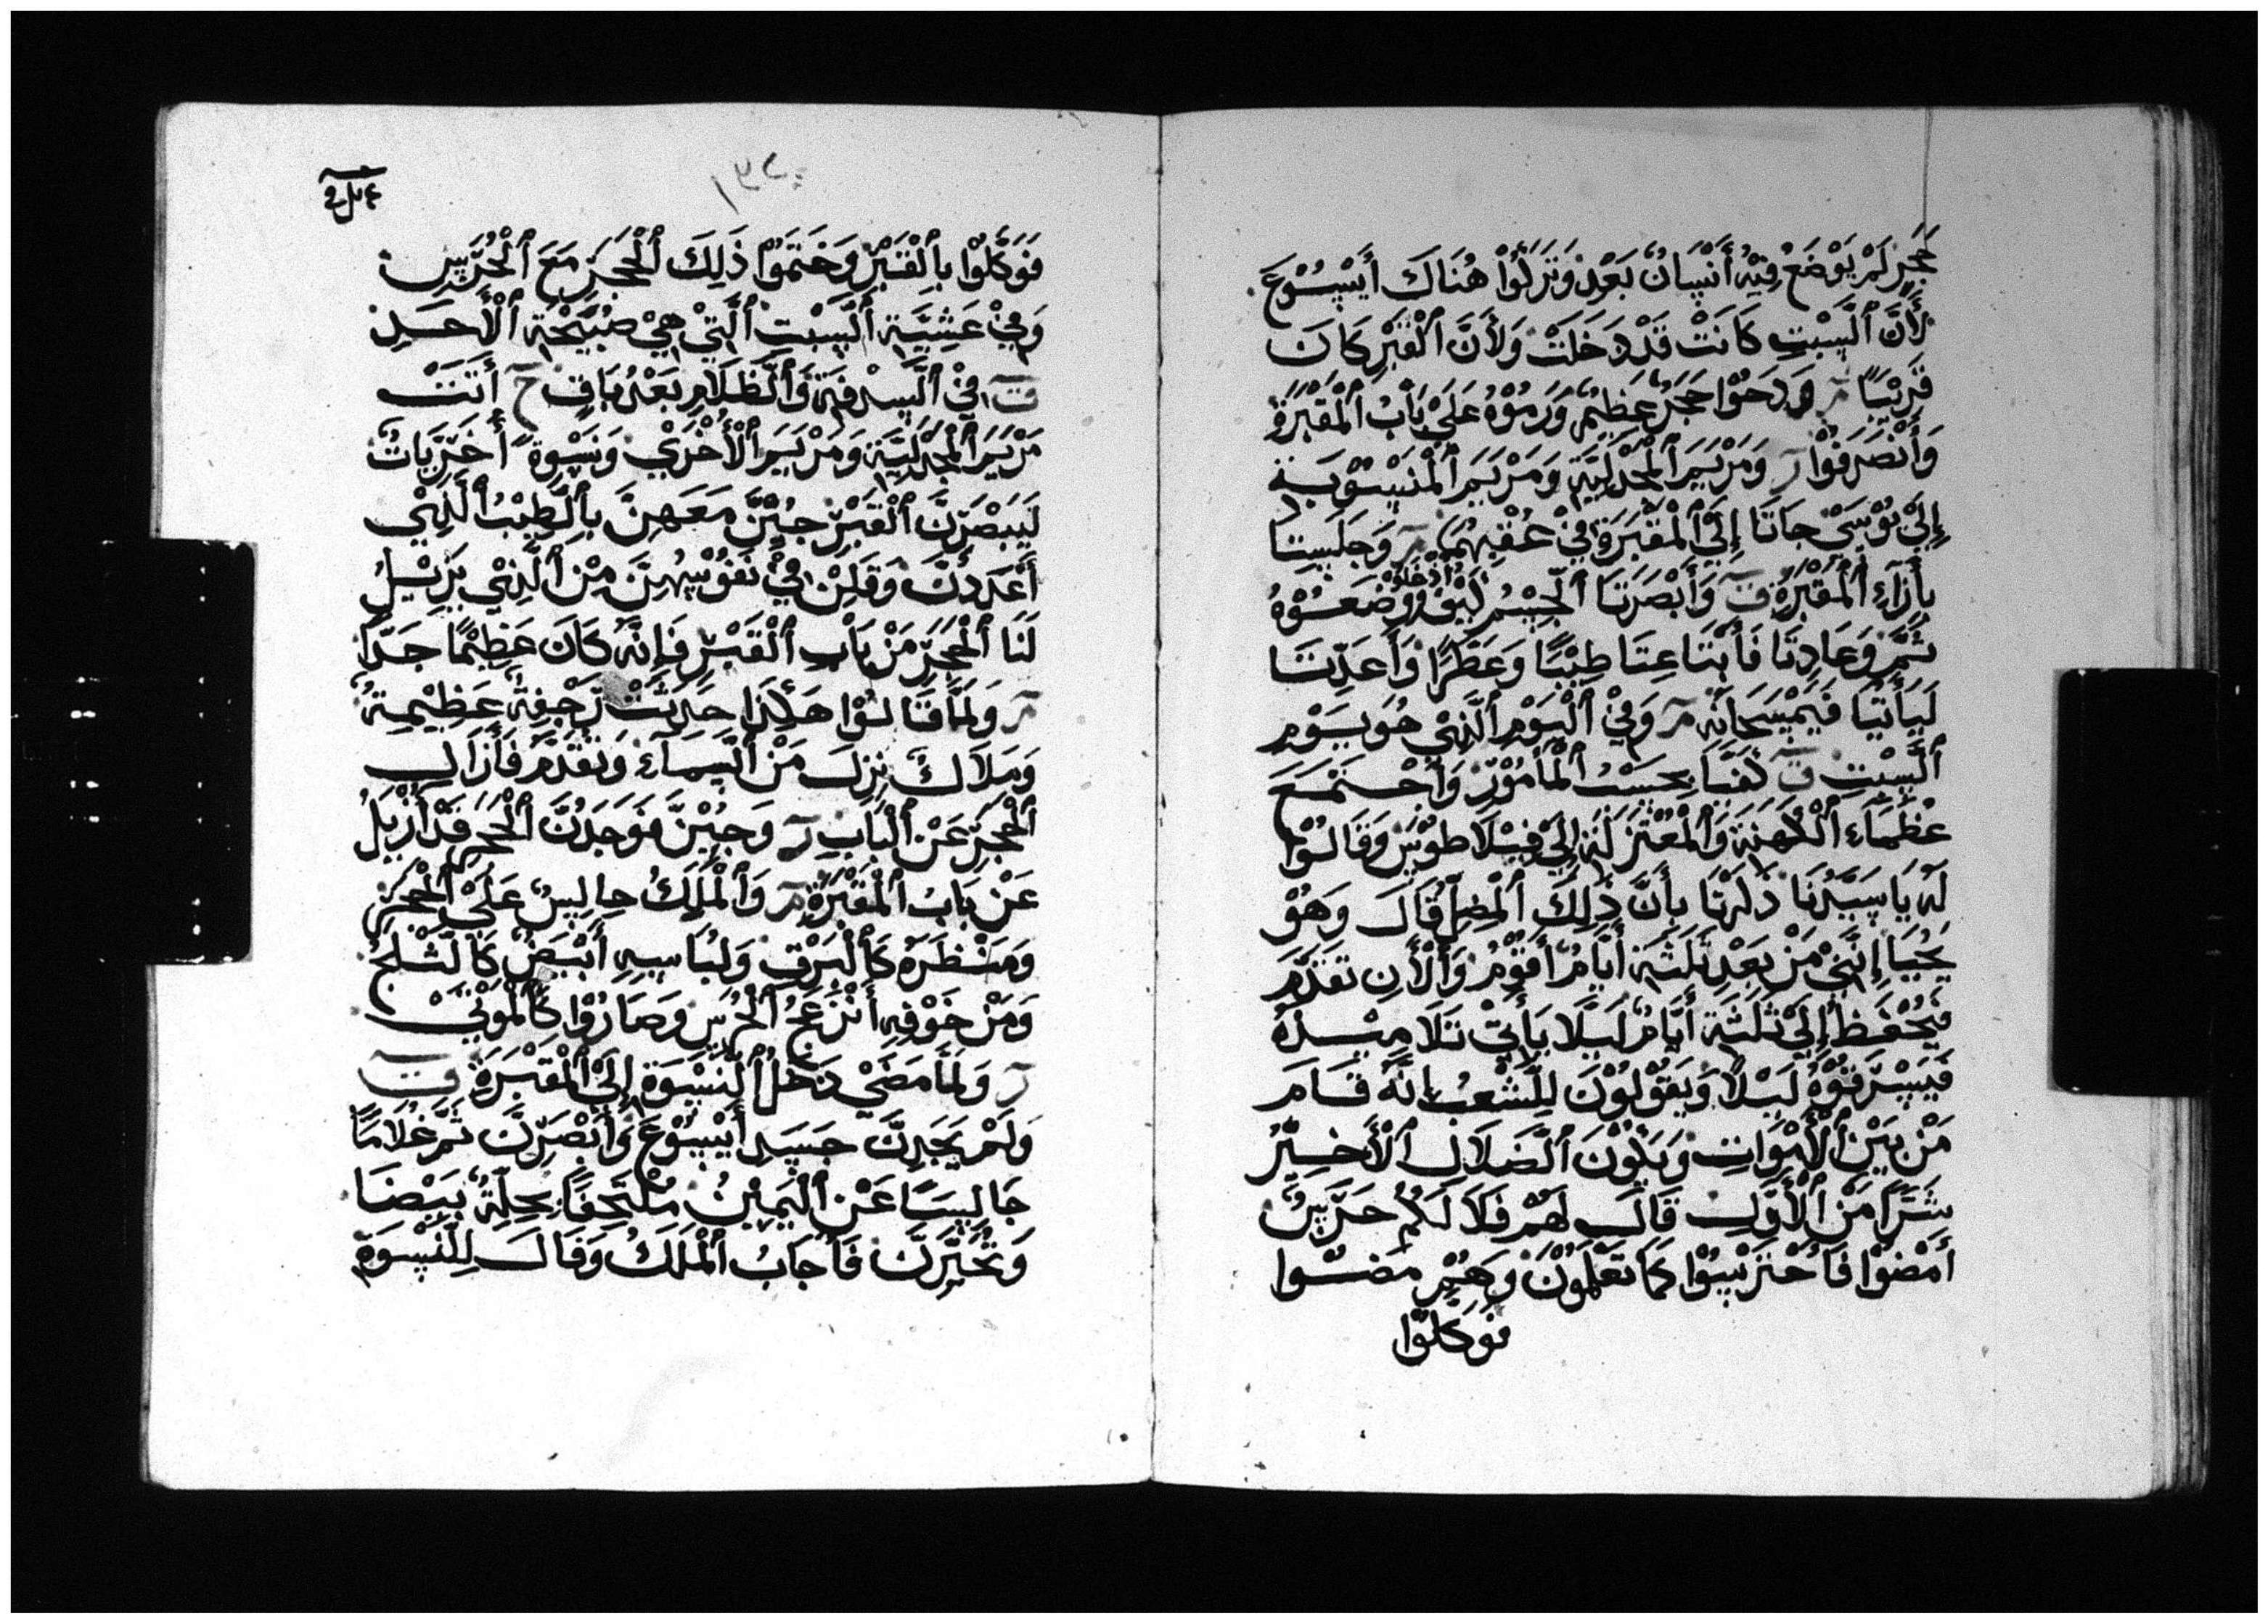 حَجَرٍ لَمْ يَوْضَعْ فِيْهُ أَنْسَانٌ بَعْدْ وَتَرَكُوْا هُنَاكَ أَيْسُوْعَ
لَأَنَّ ٱلْسَبْتِ كَانَتْ قَدْ دَخَلَتْ وَلَأَنَّ ٱلْقَبْرِ كَانَ
قَرِيْبًا مر وَدَحَوْا حَجَرٌ عَظِيْمٌ وَرَمُوْهُ عَلَىْ بَابُ ٱلْمَقْبَرَةِ
وَأَنْصَرَفُوْا ر وَمَرْيَمَ ٱلْمَجْدَلِيَّةِ وَمَرْيَمَ ٱلْمَنْسُوْبَةِ
إِلَىْ يُوْسَىْ جَاتَا إِلَىْ ٱلْمَقْبَرَةِ فِيْ عُقْبِهُمَا مر وَجَلَسَتَا
بِأَزَآءِ ٱلْمَقْبَرَةِ ق وَأَبْصَرَتَا ٱلْجِسْمُ كَيْفَ أُدْخَلُوْ وَوَضَعُوْهُ
ثَمَّ وَعَادِتَا فَأَبْتَاعِتَا طِيْبًا وَعَطْرًا وَأَعَدِّتَا
لَيَأْتِيَا فَيَمْسَحَانَهْ مر وَفِيْ ٱلْيَوْمِ ٱلَّذِيْ هُوَ يَوْمِ
ٱلْسَبْتِ ق كَفَّتَا بِحَسَبُ ٱلْمَأمُوْرْ وَأَجْتَمَعَ
عُظَمَآءِ ٱلْكَهَنَةِ وَٱلْمُعْتَزِلَةِ إِلَىْ فِيْلَاطُوْسَ وَقَالُوْا
لَهْ يَا سَيِّدُنَا ذَكَرْنَا بِأَنَّ ذَلِكَ ٱلْمُضِلِّ قَالَ وَهُوْ
يَحْيَا إِنَّنِيْ مِنْ بَعْدِ ثَلَثَةِ أَيَّامٌ أَقُوْمُ وَٱلْأَنِ تَقَدَّمَ
فَيُحْفَظُ إِلَىْ ثَلَثَةِ أَيَّامٌ لَيَلَّا يَأْتِيْ تَلَامِيْذَهْ
فَيَسْرَقُوْهُ لَيْلًا وَيَقُوْلُوْنَ لِلْشَعْبُ إِنَّهْ قَامَ
مَنْ بَيْنَ ٱلْأَمْوَاتِ وَيَكُوْنَ ٱلْضَلَالِ ٱلْأَخِيْرُ
شَرًّا مَنْ ٱلْأَوَّلِ قَالَ لَهُمْ فَلَا لَكُمْ حَرَّسٌ
أَمْضُوْا فَأَحْتَرْسُوْا كَمَا تَعْلَمُوْنَ وَهُمْ مَضُوْا
فَوَكَلُوْا
١٣٧
فَوَكَّلُوْا بِٱلْقَبْرِ وَخَتَمُوْا ذَلِكَ ٱلْحَجَرِ مَعَ ٱلْحُرَّسِ
وَفِيْ عَشِيَّةِ ٱلْسَبْتِ ٱلَّتِيْ هِيْ صُبَيْحَةِ ٱلْأَحَدِ
ق فِيْ ٱلْسَدْفَةِ وَٱلْظَلَامِ بَعْدُ بَاقٍ ح أَتَتْ
مَرْيَمَ ٱلْمَجْدَلِيَّةِ وَمَرْيَمَ ٱلْأُخْرَىْ وَنَسْوَةً أُخْرَيَاتٌ
لَيَبْصَرْنَ ٱلْقَبْرِ جِيْنَّ مَعَهِنَّ بِٱلْطِيْبُ ٱلَّذِيْ
أَعْدَدْنَ وَقَلِنْ فِيْ نَفُوْسِهُنَّ مَنْ ٱلَّذِيْ يَزِيْلُ
لَنَا ٱلْحَجَرِ مَنْ بَابِ ٱلْقَبْرِ فَإِنَّهُ كَانَ عَظِيْمًا جَدًّا
مر وَلَمَّا قَالُوْا هَكَذَا حَدَثَتْ رَجْفِةٌ عَظِيْمِةٌ
وَمَلَاكٌ نِزِلَ مَنْ ٱلْسَمَآءِ وَتَقْدَّمَ فَأَزَالَ
ٱلْحَجَرِ عَنْ ٱلْبَابِ ر وَجِيْنَّ فَوَجَدْنَّ ٱلْحَجَرِ قَدْ أُزِيْلُ
عَنْ بَابُ ٱلْمَقْبَرَةِ مر وَٱلْمَلَكُ جِالِسٌ عَلَىْ ٱلْحَجَرِ
وَمَنْظَرَهُ كَٱلْبَرْقِ وَلُبَاسِهِ أَبْيَضُ كَٱلْثَلْجُ
وَمَنْ خَوْفِهِ أَنْزَعَجُ ٱلْحُرَّسِ وَصَارُوْا كَٱلْمَوْتَىْ
ر وَلَمَّا مَضَىْ دَخَلُ ٱلْنَسْوَةِ إِلَىْ ٱلْمَقْبَرَةِ ق
وَلَمْ يَجَدِنَّ جَسَدِ أَيْسُوْعَ وَأَبْصَرْنَّ ثَمَّ غُلَامًا
جَالِسًا عَنْ ٱلْيَمِيْنُ مُلْتَحِفًا بِحِلَّةٌ بَيْضَا
وَتَحَيَّرْنَّ فَأَجَابُ ٱلْمَلَكُ وَقَالَ لِلْنَسْوَةِ